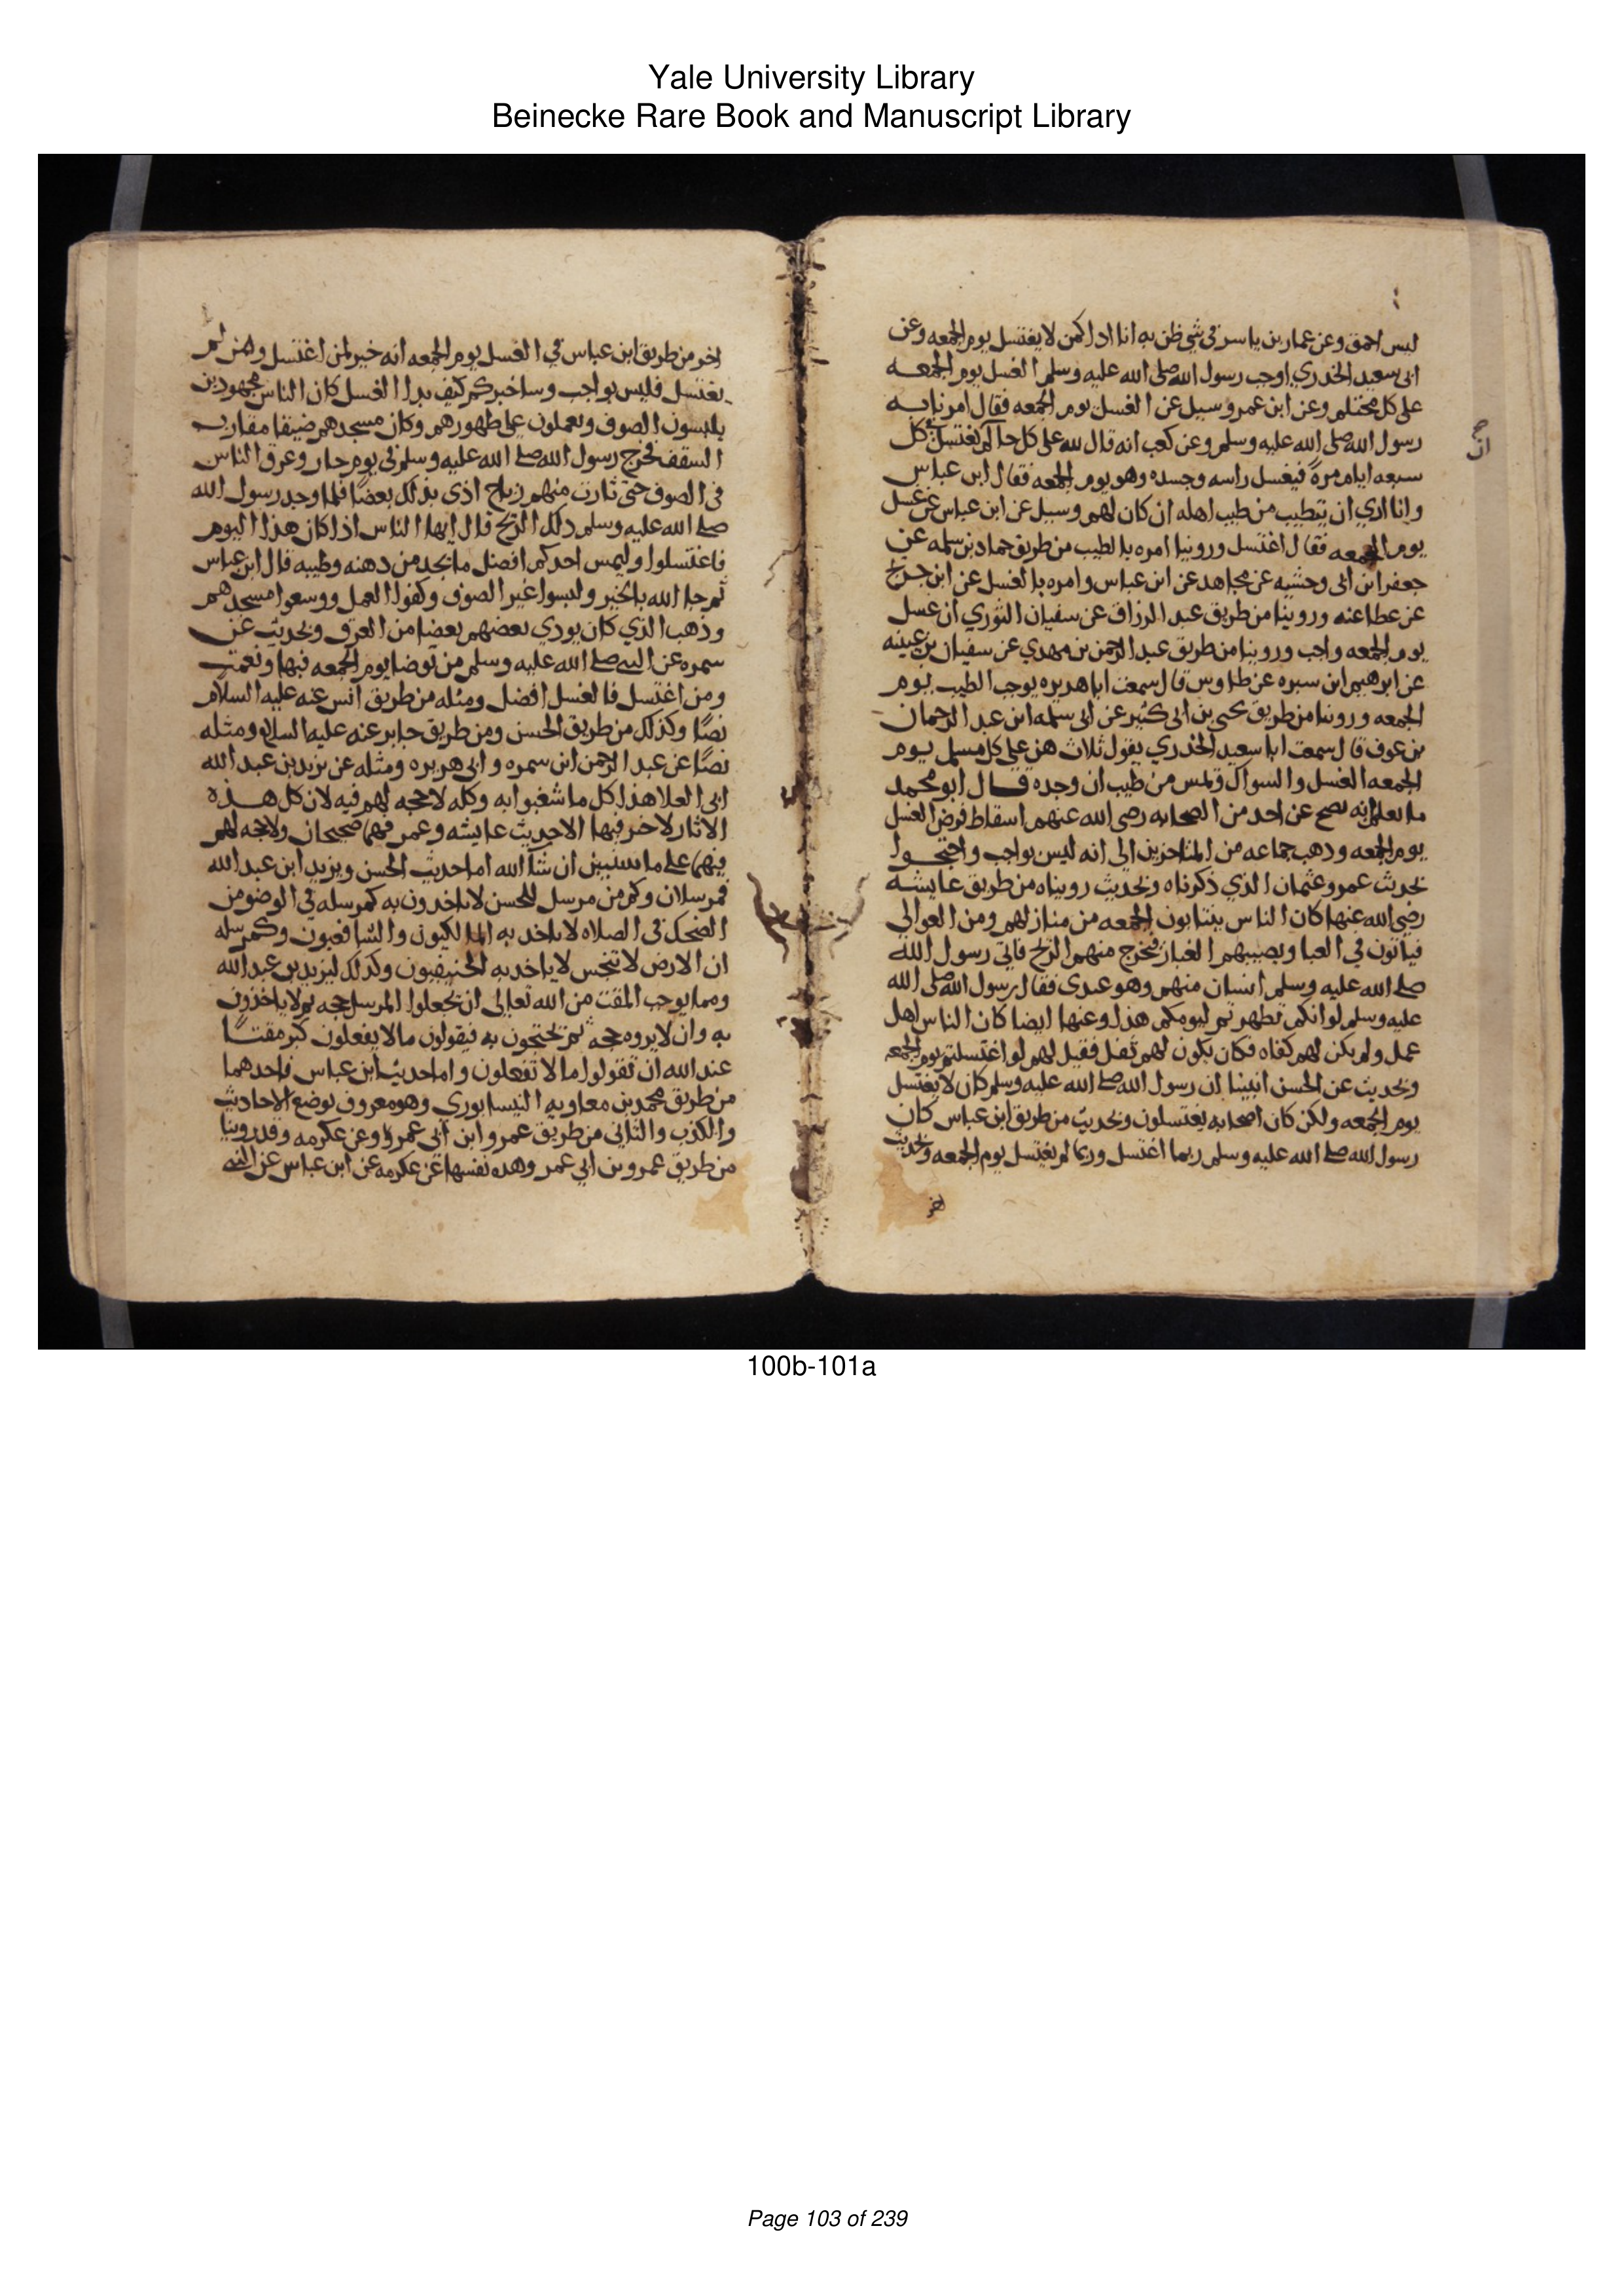 Yale University Library
Beinecke Rare Book and Manuscript Library
ليس احمق وعن عمار بن ياسر في شي ظن به انا اذا كمن لا يغتسل يوم الجمعه وعن
ابي سعيد الخدري اوجب رسول الله صلى الله عليه وسلم الغسل يوم الجمعــه
على كل محتلم وعن ابن عمر وسيل عن الغسل يوم الجمعه فقال امرنا به
رسول الله صلى الله عليه وسلم وعن كعب انه قال لله على كل حالم يغتسل في كل
ان
صح
سبعه ايام مرة فيغسل راسه وجسده وهو يوم الجمعه فقال ابن عباس
وانا اري ان يتطيب من طيب اهله ان كان لهم وسيل عن ابن عباس عن غسل
يوم الجمعه فقال اغتسل وروينا امره بالطيب من طريق حماد بن سلمه عن
جعفر ابن ابي وحشيه عن مجاهد عن ابن عباس وامره بالغسل عن ابن جريج
عن عطا عنه وروينا من طريق عبد الرزاق عن سفيان الثوري ان غسل
يوم الجمعه واجب وروينا من طريق عبد الرحمن بن مهدي عن سفيان بن عيينه
عن ابرهيم ابن ميسره عن طاوس قال سمعت ابا هريره يوجب الطيب يوم
الجمعه وروينا من طريق يحيى بن ابي كثير عن ابي سلمه ابن عبد الرحمان
بن عوف قال سمعت ابا سعيد الخدري يقول ثلاث هن على كل مسلم يـوم
الجمعه الغسل والسواك ويمس من طيب ان وجده قـال ابو محمد
ما نعلم انه يصح عن احد من الصحابه رضى الله عنهم اسقاط فرض الغسل
يوم الجمعه وذهب جماعه من المتاخرين الى انه ليس بواجب واحتجــوا
بحديث عمر وعثمان الذي ذكرناه وبحديث رويناه من طريق عايشه
رضى الله عنها كان الناس ينتابون الجمعه من منازلهم ومن العوالي
فياتون في العبا ويصيبهم الغبار فتخرج منهم الريح فاتى رسول الله
صلى الله عليه وسلم انسان منهم وهو عندي فقال رسول الله صلى الله
عليه وسلم لو انكم تطهرتم ليومكم هذا وعنها ايضا كان الناس اهل
عمل ولم يكن لهم كفاه فكان يكون لهم تفل فقيل لهم لو اغتسلتم يوم الجمعه
وبحديث عن الحسن انبينا ان رسول الله صلى الله عليه وسلم كان لا يغتسل
يوم الجمعه ولكن كان اصحابه يغتسلون وبحديث من طريق ابن عباس كان
رسول الله صلى الله عليه وسلم ربما اغتسل وربما لم يغتسل يوم الجمعه وبحديث
اخر
اخر من طريق ابن عباس في الغسل يوم الجمعه انه خير لمن اغتسل ومن لم
يغتسل فليس بواجب وساخبركم كيف بدا الغسل كان الناس مجهودين
يلبسون الصوف ويعملون على ظهورهم وكان مسجدهم ضيقا مقارب
السقف فخرج رسول الله صلى الله عليه وسلم في يوم حار وعرق الناس
في الصوف حتى ثارت منهم رياح اذى بذلك بعضا فلما وجد رسول الله
صلى الله عليه وسلم ذلك الريح قال ايها الناس اذا كان هذا اليوم
فاغتسلوا وليمس احدكم افضل ما يجد من دهنه وطيبه قال ابن عباس
ثم جا الله بالخير ولبسوا غير الصوف وكفوا العمل ووسعوا مسجدهم
وذهب الذي كان يودي بعضهم بعضا من العرق وبحديث عن
سمره عن النبي صلى الله عليه وسلم من توضا يوم الجمعه فبها ونعمت
ومن اغتسل فالغسل افضل ومثله من طريق انس عنه عليه السلام
نصًا وكذلك من طريق الحسن ومن طريق جابر عنه عليه السلام ومثله
نصًا عن عبد الرحمن ابن سمره وابي هريره ومثله عن يزيد بن عبد الله
ابي العلا هذا كل ما شغبوا به وكله لا حجه لهم فيه لان كل هــذه
الاثار لا خير فيها الا حديث عايشه وعمر فهما صحيحان ولا حجه لهم
فيهما على ما سنبين ان شآ الله اما حديث الحسن ويزيد ابن عبد الله
فمرسلان وكم من مرسل للحسن لا ياخذون به كمرسله في الوضو من
الضحك في الصلاه لا ياخذ به المالكيون والشافعيون وكمرسله
ان الارض لا تنجس لا ياخذ به الحنيفيون وكذلك ليزيد بن عبد الله
ومما يوجب المقت من الله تعالى ان يجعلوا المرسل حجه ثم لا ياخذون
به وان لا يروه حجه ثم يحتجون به فيقولون ما لا يفعلون كبر مقتــًا
عند الله ان تقولوا ما لا تفعلون واما حديث ابن عباس فاحدهما
من طريق محمد بن معاويه النيسابوري وهو معروف بوضع الاحاديث
والكذب والثاني من طريق عمرو ابن ابي عمرو وعن عكرمه وقد روينا
من طريق عمرو بن ابي عمر وهذه نفسها عن عكرمه عن ابن عباس عن النبي
100b-101a
Page 103 of 239